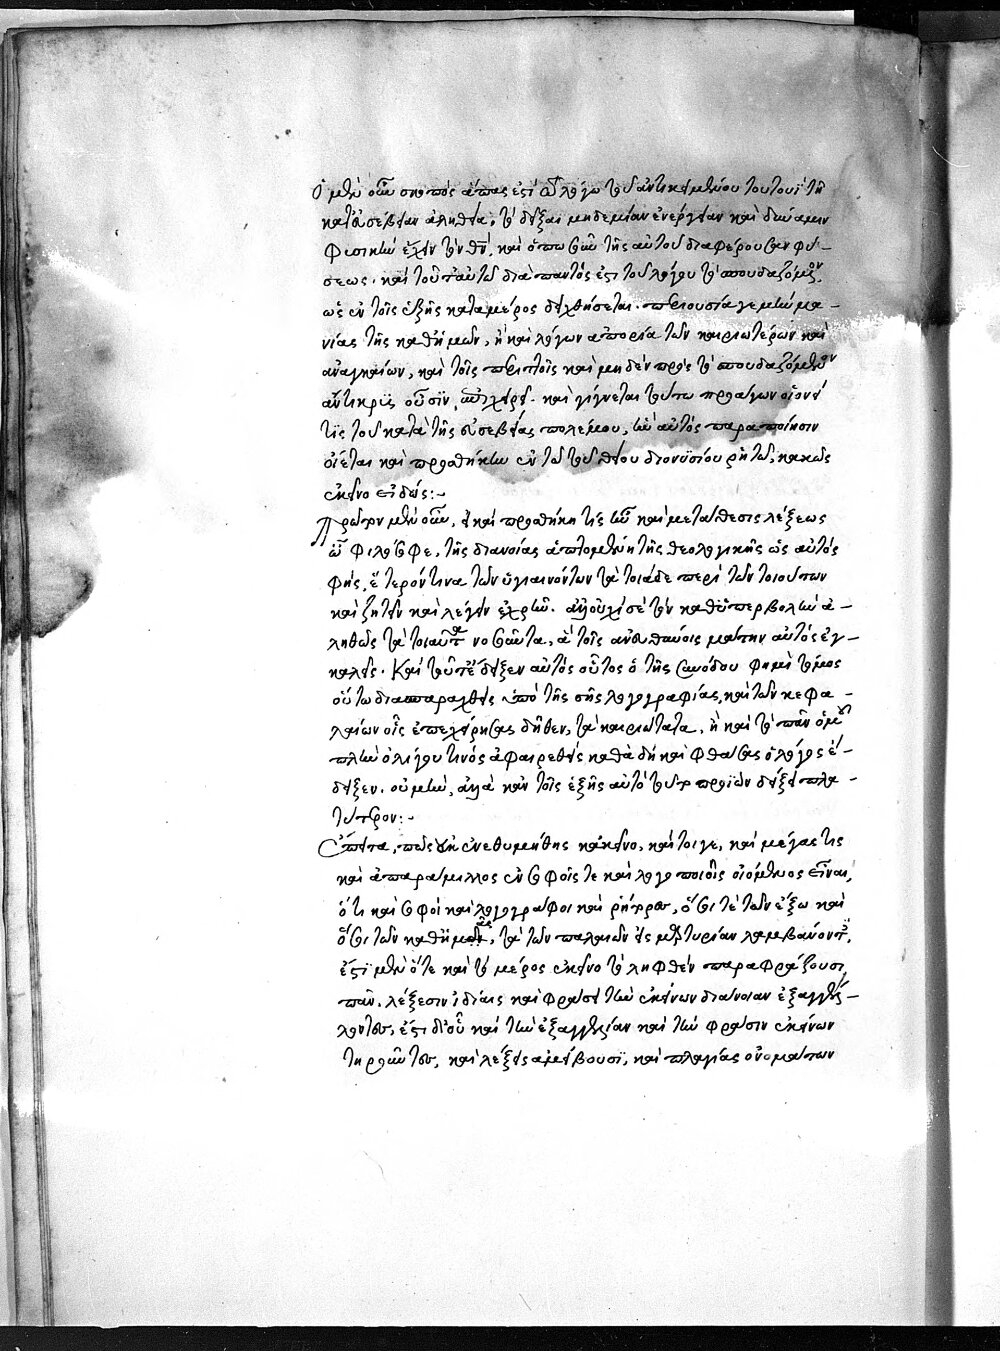 Ὁ μὲν οὖν σκοπὸς ἅπας ἐστὶ τῷ λόγῳ τοῦ ἀντικειμένου τουτουῒ τῇ
κατ' εὐσέβειαν ἀληθείᾳ, τὸ δεῖξαι μηδεμίαν ἐνέργειαν καὶ δύναμιν
φυσικὴν ἔχειν τὸν θν, καὶ ὁπωσοῦν τῆς αὐτοῦ διαφέρουσαν φύ-
σεως. καὶ τοῦτ' αὐτῷ διαπαντός ἐστι τοῦ λόγου τὸ σπουδαζόμενον,
ὡς ἐν τοῖς ἑξῆς καταμέρος δειχθήσεται. περιουσίᾳ γε μὴν μα-
νίας τῆς καθ' ἡμῶν, ἢ καὶ λόγων ἀπορίᾳ τῶν καιριωτέρων καὶ
ἀναγκαίων, καὶ τοῖς περιττοῖς καὶ μηδὲν πρὸς τὸ σπουδαζόμενον
ἄντικρυς οὖσιν, ἐπιχειρεῖ. καὶ γίγνεται τούτῳ προάγων οἱονεί
τις τοῦ κατὰ τῆς εὐσεβείας πολέμου, ἣν αὐτὸς παραποίησιν
οἴεται καὶ προσθήκην ἐν τῷ τοῦ θείου διονυσίου ῥητῷ, κακῶς
ἐκεῖνο εἰδώς:~
Πρῶτον μὲν οὖν, εἰ καὶ προσθήκη τίς ἦν καὶ μετάθεσις λέξεως
ὦ φιλόσοφε, τῆς διανοίας ἁπτομένη τῆς θεολογικῆς ὡς αὐτὸς
φῂς, ἕτερόν τινα τῶν ὑγιαινόντων τὰ τοιάδε περὶ τῶν τοιούτων
καὶ ζητεῖν καὶ λέγειν ἐχρῆν. ἀλλ' οὐχὶ σὲ τὸν καθ' ὑπερβολὴν ἀ-
ληθῶς τὰ τοιαῦτα νοσοῦντα, ἃ τοῖς ἀνευθύνοις μάτην αὐτὸς ἐγ-
καλεῖς. Καὶ τοῦτ' ἔδειξεν αὐτὸς οὗτος ὁ τῆς συνόδου φημὶ τόμος
οὕτω διασπαραχθεὶς ὑπὸ τῆς σῆς λογογραφίας, καὶ τῶν κεφα-
λαίων οἷς ἐπεχείρησας δῆθεν, τὰ καιριώτατα, ἢ καὶ τὸ πᾶν ὁμοῦ
πλὴν ὀλίγου τινὸς ἀφαιρεθεὶς καθὰ δὴ καὶ φθάσας ὁ λόγος ἔ-
δειξεν. οὐ μὴν, ἀλλὰ κἀν τοῖς ἑξῆς αὐτὸ τοῦτο προϊὼν δείξει πλα-
τύτερον:~
Ἔπειτα, πῶς οὐκ ἐνεθυμήθης κἀκεῖνο, καίτοιγε, καὶ μέγας τις
καὶ ἀπαράμιλλος ἐν σοφοῖς τε καὶ λογοποιοῖς οἰόμενος εἶναι,
ὅτι καὶ σοφοὶ καὶ λογογράφοι καὶ ῥήτορες, ὅσοι τὲ τῶν ἔξω καὶ
ὅσοι τῶν καθ' ἡμᾶς, τὰ τῶν παλαιῶν εἰς μαρτυρίαν λαμβάνοντες,
ἔστι μὲν ὅτε καὶ τὸ μέρος ἐκεῖνο τὸ ληφθὲν παραφράζουσι
πᾶν, λέξεσιν ἰδίαις καὶ φράσει τὴν ἐκείνων διάνοιαν ἐξαγγέλ-
λοντες, ἔστι δ' οὗ καὶ τὴν ἐξαγγελίαν καὶ τὴν φράσιν ἐκείνων
τηροῦντες, καὶ λέξεις ἀμείβουσι, καὶ πλαγίας ὀνομάτων